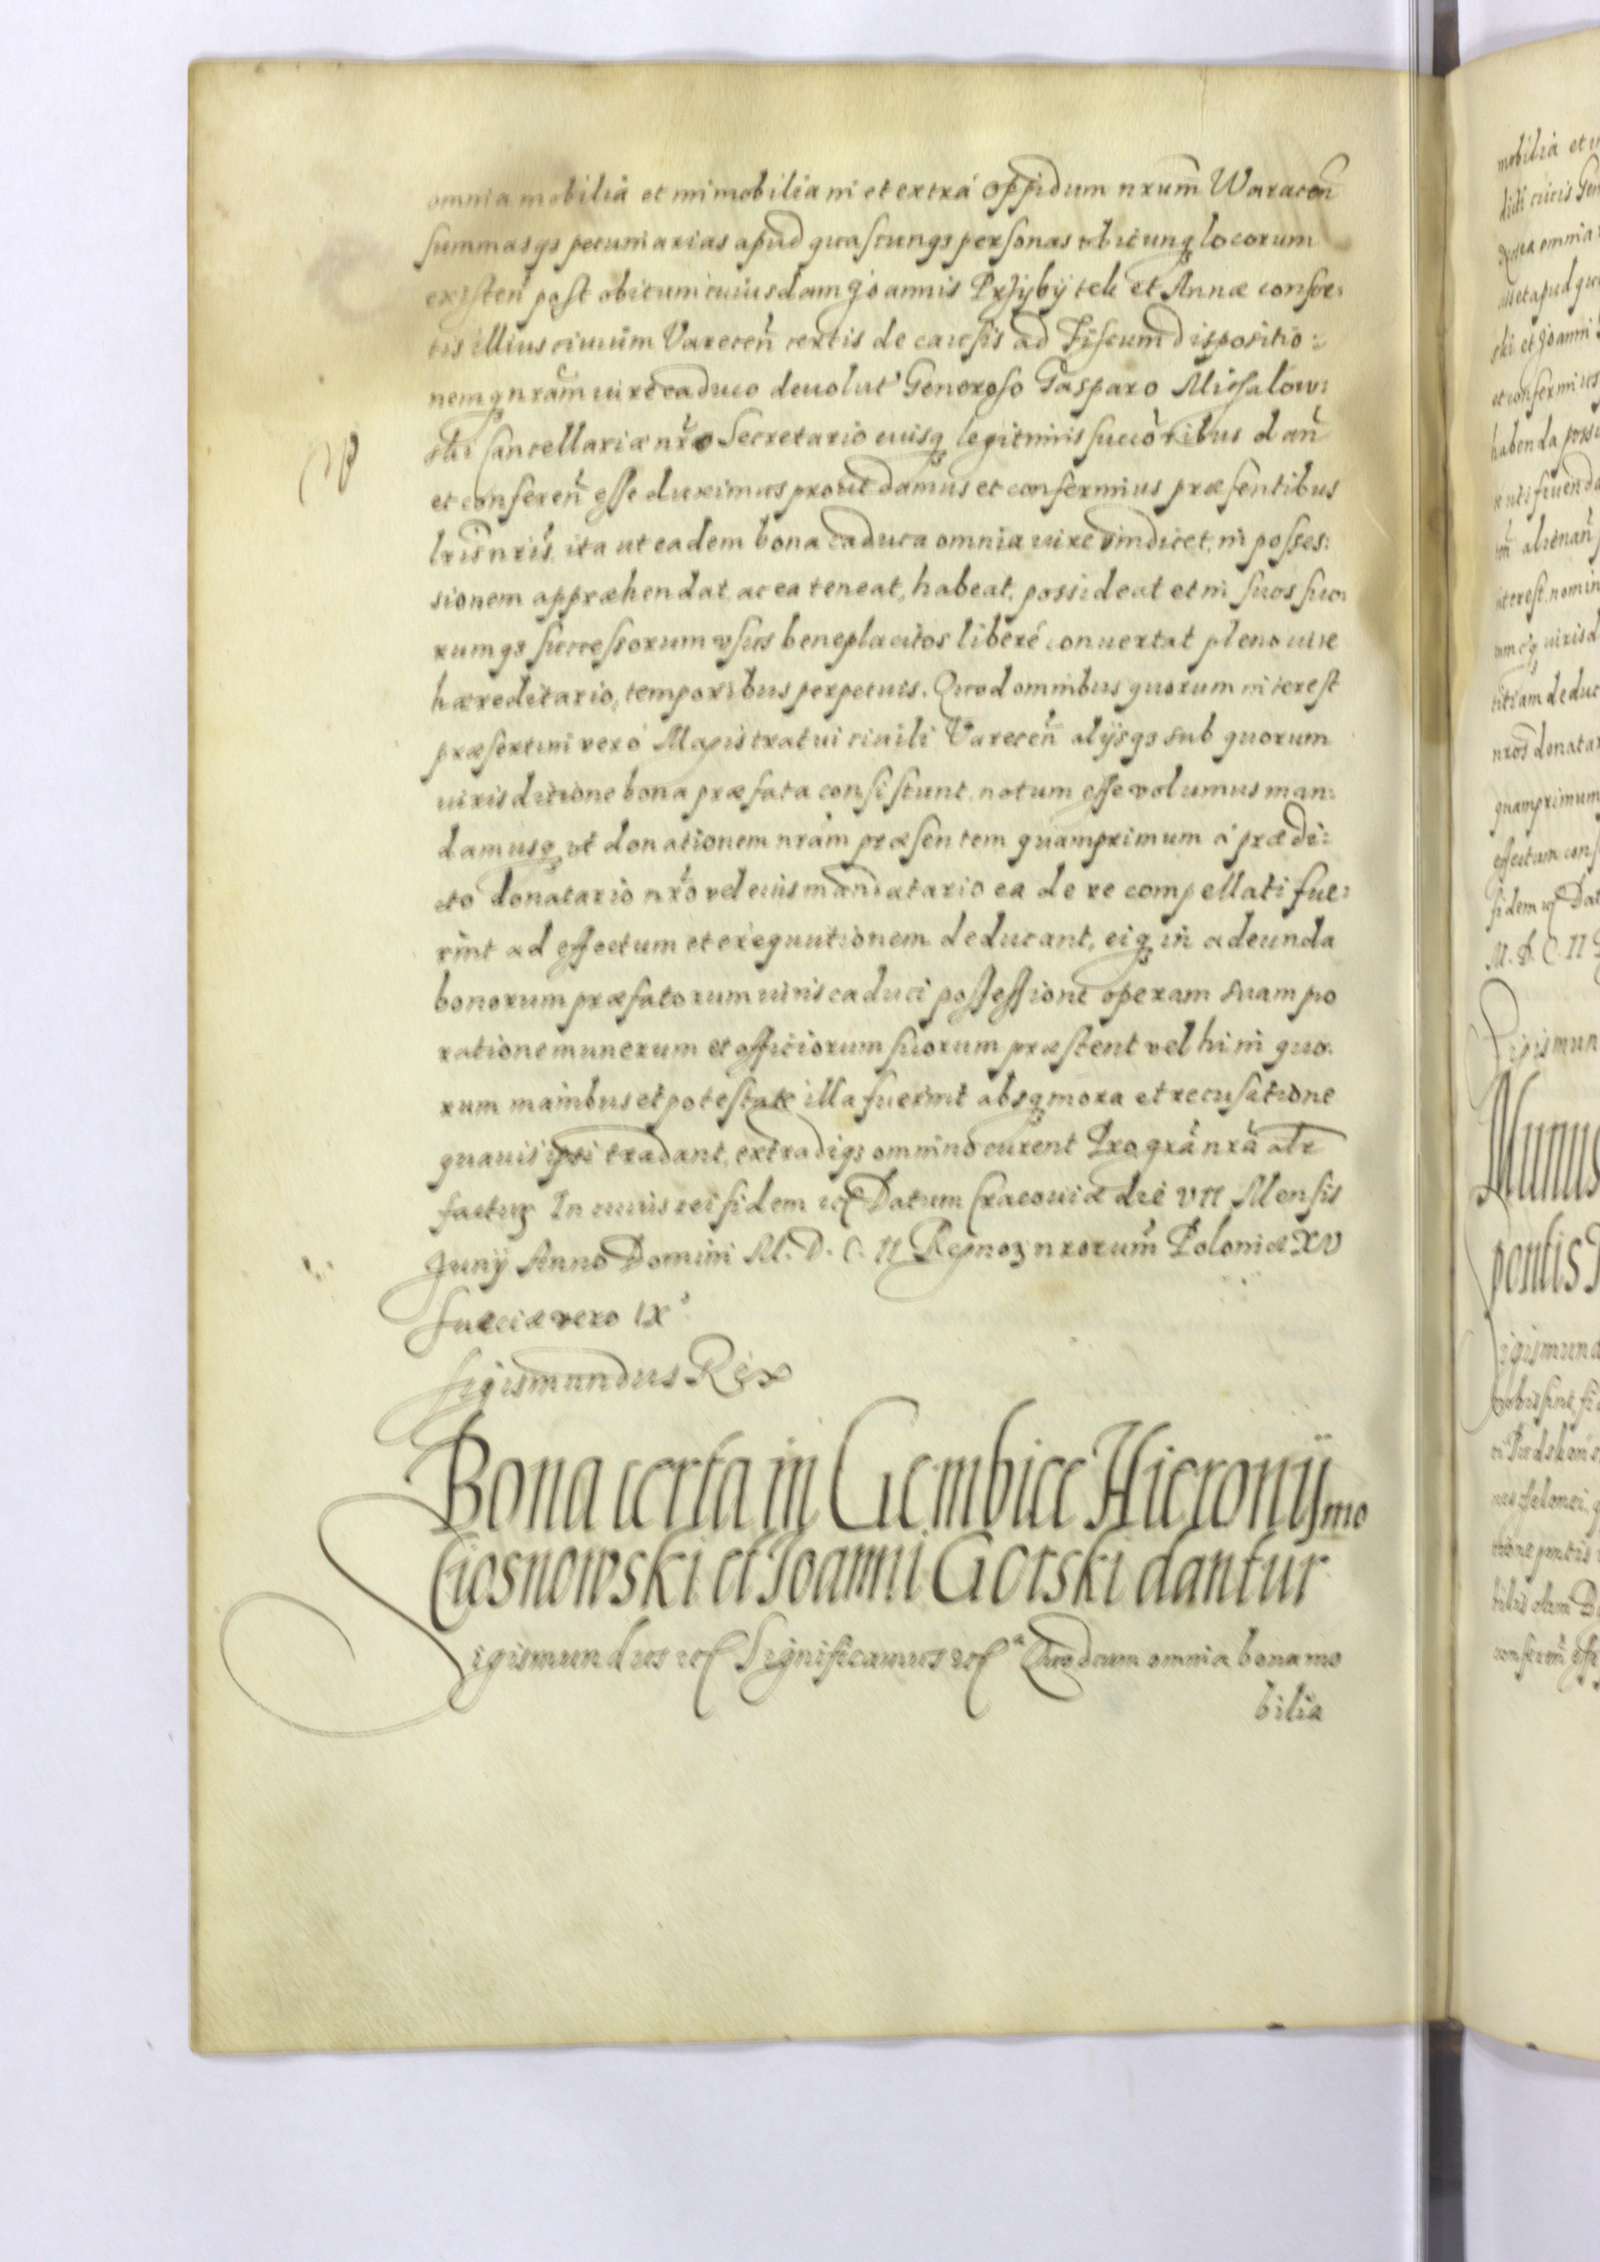 omnia mobilia et immobilia in et extrá oppidum nrum̃ Waracen̄
summasqз pecuniarias apud quascunqз personas ubicunq locorum
existen̄ post obitum cuiusdam Joannis Pržybytek et Annæ consor:
tis illius ciuium Varecen̄ certis de causis ad Fiscum dispositio:
nemq nrãm iure caduco deuolut' Generoso Gasparo Michalow:
ski Cancellariæ nr̃o Secretario eiusq legitimis succõribus dan̄
et conferen̄ esse duximus prout damus et confermius præsentibus
lris nris. ita ut eadem bona caduca omnia iure vindicet, in posses:
sionem appræhendat, ac ea teneat, habeat, possideat et in suos suo:
rumqз successorum vsus beneplacitos liberé conuertat pleno iure
hæreditario, temporibus perpetuis. Quod omnibus quorum interest
præsertim veró Magistratui ciuili Varecen̄ alijsqз sub quorum
iurisditione bona præfata consistunt. notum esse volumus man:
damusq vt donationem nrãm præsentem quamprimum á prædi:
cto donatario nr̃o vel eius mandatario ea de re compellati fue:
rint ad effectum et exequutionem deducant, eiq in adeunda
bonorum præfatorum iuris caduci possessione operam suam pro
ratione munerum et officiorum suorum præstent vel hi in quo:
rum manibus et potestate illa fuerint absq mora et recusatione
quauis ipsi tradant, extradiqз omnino curent Pro grã nrã altr
factur̃ In cuius rei fidem ec̃ Datum Cracouiæ die VII Mensis
Junij Anno Domini M. D. C. II Regnoз nrorum̃ Poloniæ XV
Sueciæ vero IX°
Sigismundus Rex
Bona certa in Gembice Hieronÿmo
Ciosnowski et Joanni Gorski dantur
Sigismundus ec̃ Significamus ec̃ Quod cum omnia bona mo
bilia